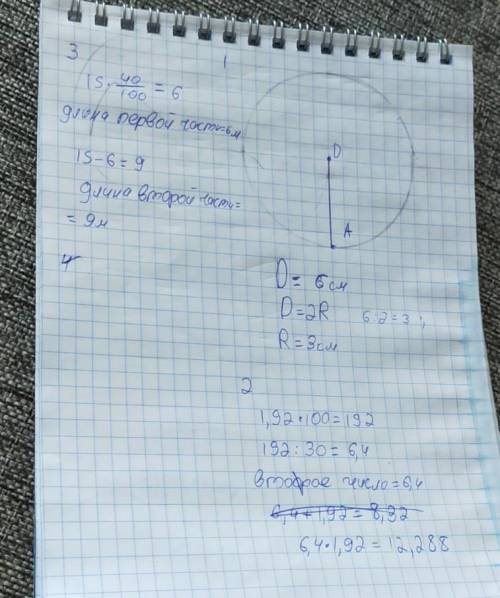 3
15 · 40/100 = 6
длина первой части = 6м
15 - 6 = 9
длина второй части =
= 9м
4
1
D
A
D = 6 см
D = 2R 6 : 2 = 3
R = 3см
2
1,92 · 100 = 192
192 : 30 = 6,4
второе число = 6,4
6,4 + 1,92 = 8,32
6,4 · 1,92 = 12,288